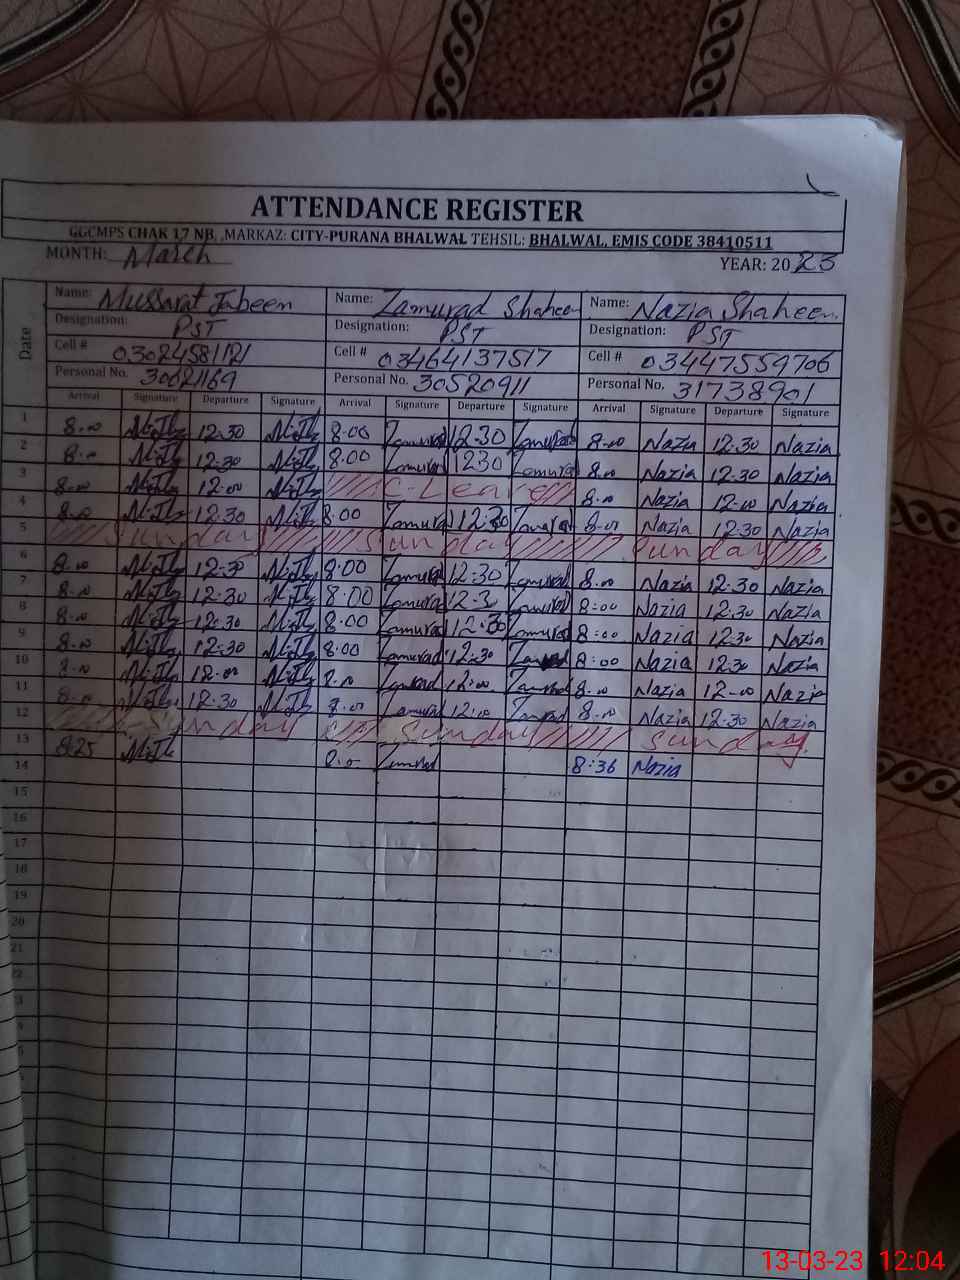 ATTENDANCE REGISTER
GGCMPS CHAK 17 NB, ,MARKAZ: CITY-PURANA BHALWAL TEHSIL: BHALWAL, EMIS CODE 38410511
MONTH: March YEAR: 2023
Name: Mussarat Jabeen Name: Zamurad Shaheen Name: Nazia Shaheen
Designation: PST Designation: PST Designation: PST
Cell # 03024581121 Cell # 03464137517 Cell # 03447559706
Personal No. 30621169 Personal No. 30520911 Personal No. 31738901
Date Arrival Signature Departure Signature Arrival Signature Departure Signature Arrival Signature Departure Signature
1 8.00 12.30 8.00 Zamurad 12.30 Zamurad 8.00 Nazia 12.30 Nazia
2 8.00 12.30 8.00 Zamurad 1230 Zamurad 8.00 Nazia 12.30 Nazia
3 8.00 12.00 C-Leave 8.00 Nazia 12.00 Nazia
4 8.00 12.30 8.00 Zamurad 12.30 Zamurad 8.00 Nazia 12.30 Nazia
5 Sunday Sunday Sunday
6 8.00 12.30 8:00 Zamurad 12.30 Zamurad 8.00 Nazia 12.30 Nazia
7 8.00 12.30 8.00 Zamurad 12.3 Zamurad 8:00 Nazia 12.30 Nazia
8 8.00 12.30 8.00 Zamurad 12.30 Zamurad 8:00 Nazia 12.30 Nazia
9 8.00 12.30 8:00 Zamurad 12.30 8:00 Nazia 12.30 Nazia
10 8.00 12.00 8.00 Zamurad 12:00 Zamurad 8.00 Nazia 12.00 Nazia
11 8.00 12.30 8.00 Zamurad 12:00 Zamurad 8.00 Nazia 12.30 Nazia
12 Sunday Sunday Sunday
13 8.25 Zamurad 8:36 Nazia
14
15
16
17
18
19
20
21
22
13-03-23 12:04